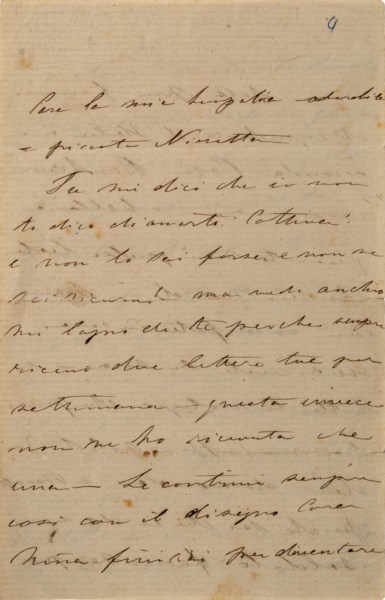 9
Cara la mia simpatia adorabile
e piccola Ninetta
Tu mi dici che io non
ti dico d'amarti Cattiva!
e non lo sai forse e non ne
sei sicura! ma vedi anch'io
mi lagno di te perche sempre
ricevo due lettere tue per
settimana questa invece
non ne ho ricevuta che
una — Se continui sempre
cosi con il disegno Cara
Nina finirai per diventare